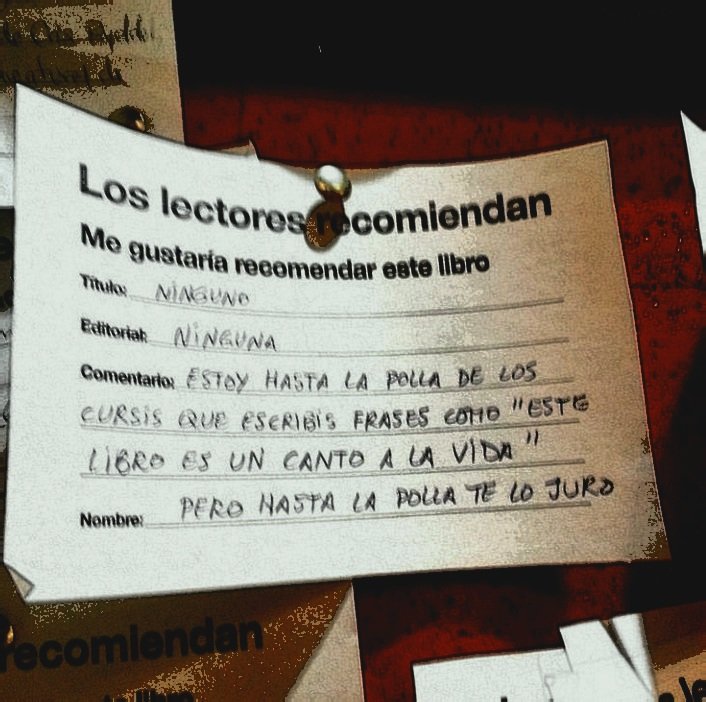 Los lectores recomiendan
Me gustaría recomendar este libro
Título: NINGUNO
Editorial: NINGUNA
Comentario: ESTOY HASTA LA POLLA DE LOS
CURSIS QUE ESCRIBÍS FRASES COMO "ESTE
LIBRO ES UN CANTO A LA VIDA"
PERO HASTA LA POLLA TE LO JURO
Nombre:
recomiendan